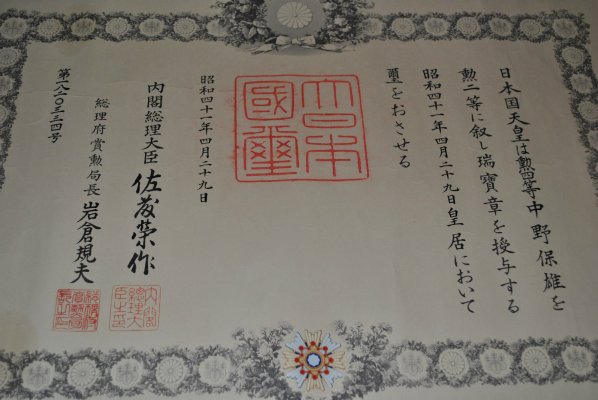 日本国天皇は勲四等中野保雄を
勲二等に叙し瑞寶章を授与する
昭和四十一年四月二十九日皇居において
璽をおさせる
大日本國璽
昭和四十一年四月二十九日
内閣総理大臣 佐藤榮作
総理府賞勲局長 岩倉規夫
第一八二〇三三四号
内閣総理大臣之印